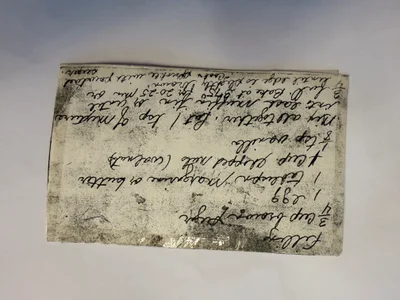 Filling
3/4 cup brown sugar
1 egg
1 tablespn margarine or butter
1 cup chopped nuts (walnuts)
1/8 tsp vanilla
Mix all together. Put 1 tsp of mixture
into each muffin tin or until
3/4 full. Bake at 350 for 20-25 min or
until edge is brown
sprinkle with powdered
sugar